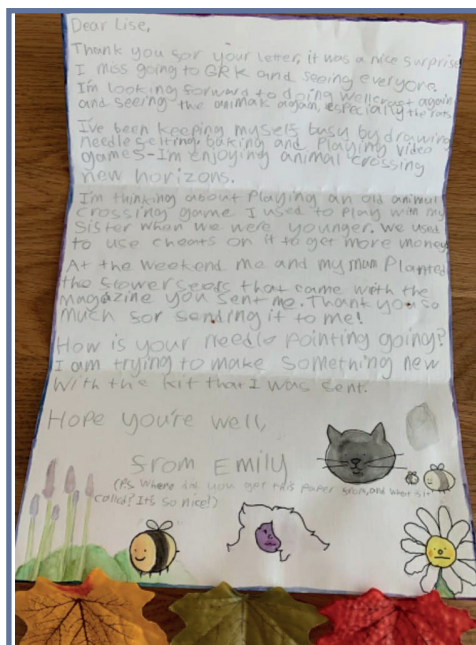 Dear Lise,
Thank you for your letter, it was a nice surprise
I miss going to GRK and seeing everyone.
I'm looking forward to doing wellcraft again
and seeing the animals again, especially the rats.
I've been keeping myself busy by drawing
needle felting, baking and playing video
games-I'm enjoying animal crossing
new horizons.
I'm thinking about playing an old animal
crossing game I used to play with my
sister when we were younger. We used
to use cheats on it to get more money
At the weekend me and my mum planted
the flower seeds that came with the
magazine you sent me. Thank you so
much for sending it to me!
How is your needle pointing going?
I am trying to make something new
with the kit that I was sent.
Hope you're well,
from Emily
(Ps where did you get this paper from, and what is it
called? It's so nice!)